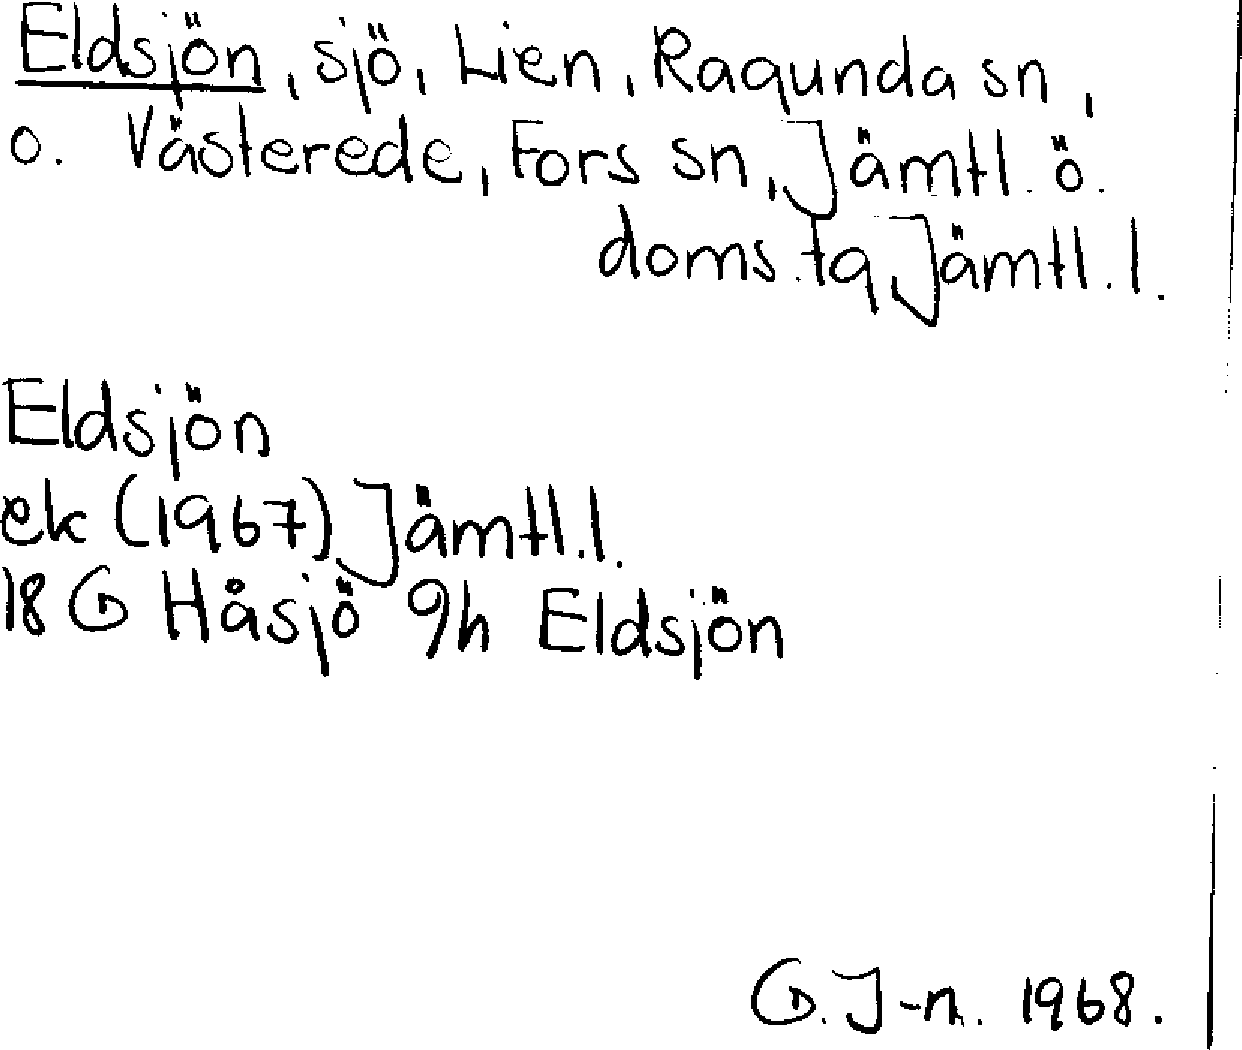 Eldsjön, sjö, Lien, Ragunda sn,
o. Västerede, Fors sn, Jämtl. ö.
doms.tg, Jämtl. l.
Eldsjön
ek (1967) Jämtl. l.
18 G Håsjö 9h Eldsjön
G. J-n. 1968.